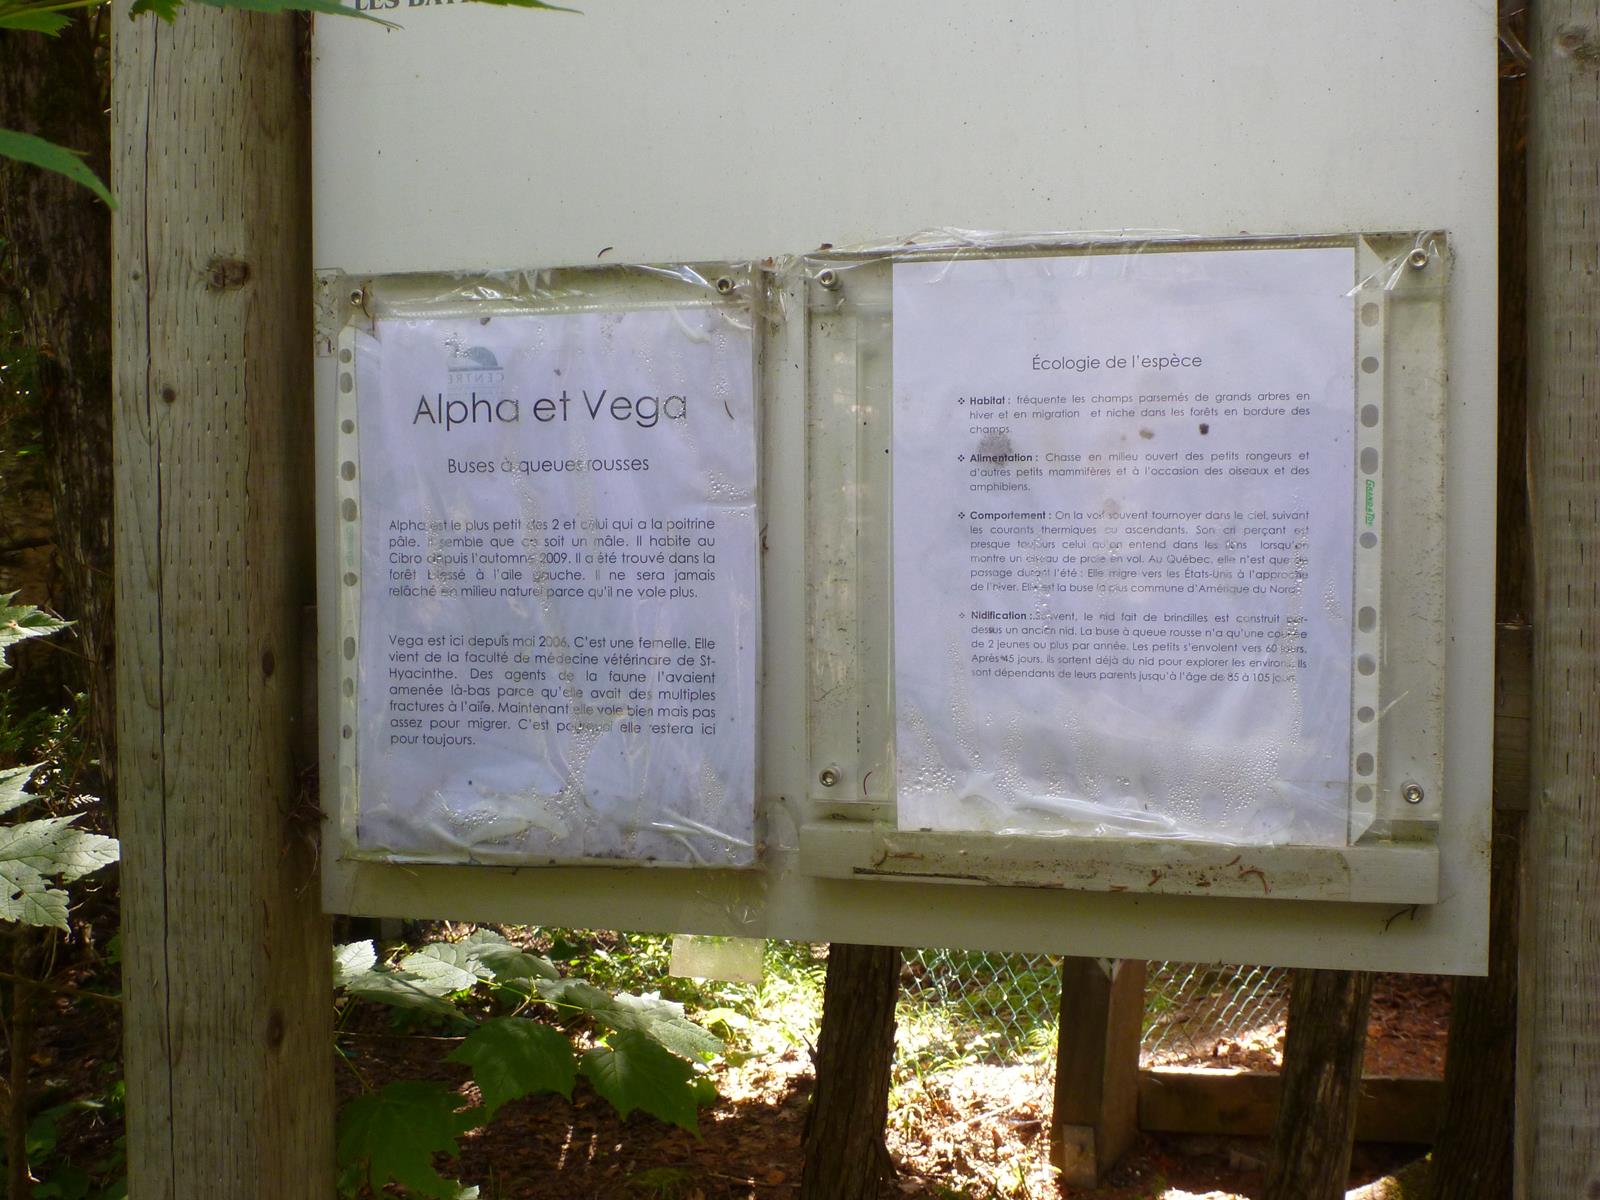 LES
CENTRE
Alpha et Vega
Buses à queues rousses
Alpha est le plus petit des 2 et celui qui a la poitrine
pâle. Il semble que ce soit un mâle. Il habite au
Cibro depuis l'automne 2009. Il a été trouvé dans la
forêt blessé à l'aile gauche. Il ne sera jamais
relâché en milieu naturel parce qu'il ne vole plus.
Vega est ici depuis mai 2006. C'est une femelle. Elle
vient de la faculté de médecine vétérinaire de St-
Hyacinthe. Des agents de la faune l'avaient
amenée là-bas parce qu'elle avait des multiples
fractures à l'aile. Maintenant elle vole bien mais pas
assez pour migrer. C'est pourquoi elle restera ici
pour toujours.
Écologie de l'espèce
❖ Habitat : fréquente les champs parsemés de grands arbres en
hiver et en migration et niche dans les forêts en bordure des
champs.
❖ Alimentation : Chasse en milieu ouvert des petits rongeurs et
d'autres petits mammifères et à l'occasion des oiseaux et des
amphibiens.
❖ Comportement : On la voit souvent tournoyer dans le ciel, suivant
les courants thermiques ou ascendants. Son cri perçant est
presque toujours celui qu'on entend dans les films lorsqu'on
montre un oiseau de proie en vol. Au Québec, elle n'est que de
passage durant l'été : Elle migre vers les États-Unis à l'approche
de l'hiver. Elle est la buse la plus commune d'Amérique du Nord.
❖ Nidification : Souvent, le nid fait de brindilles est construit par-
dessus un ancien nid. La buse à queue rousse n'a qu'une couvée
de 2 jeunes ou plus par année. Les petits s'envolent vers 60 jours.
Après 45 jours, ils sortent déjà du nid pour explorer les environs. Ils
sont dépendants de leurs parents jusqu'à l'âge de 85 à 105 jours.
GRAND&TOY